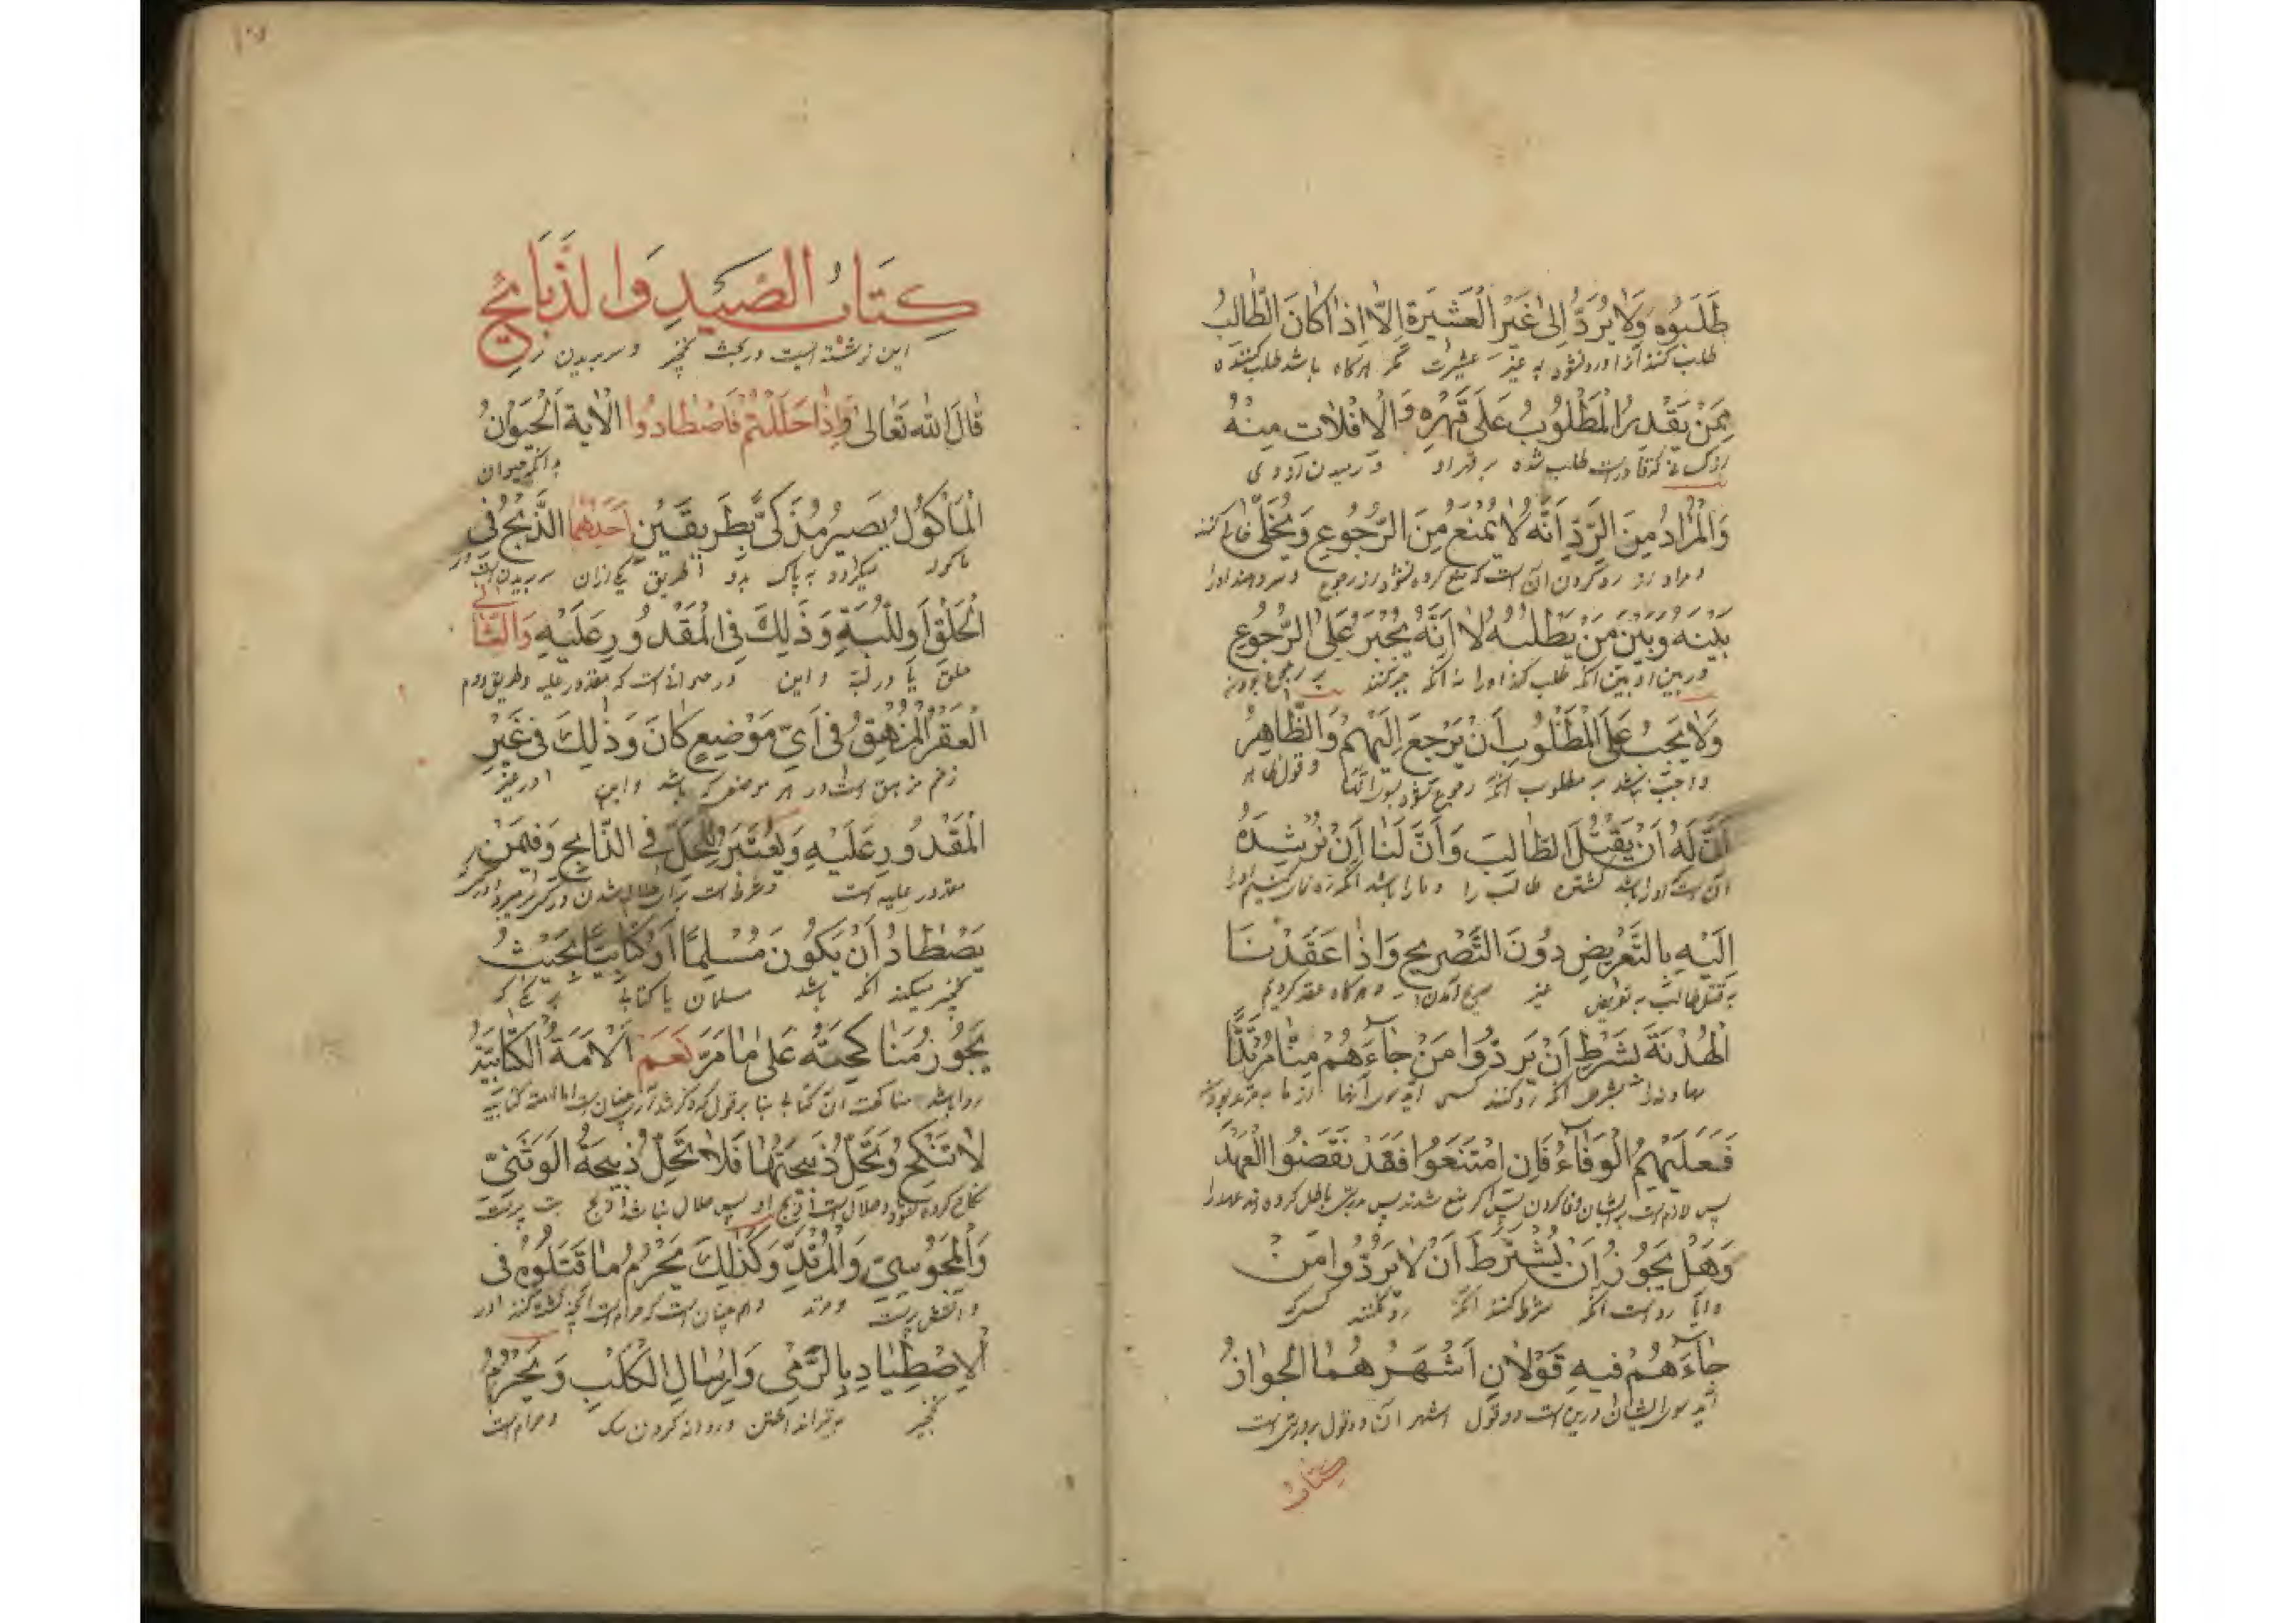 طَلَبُوهُ وَلَا يُرَدُّ إِلَىٰ غَيْرِ الْعَشِيرَةِ إِلَّا إِذَا كَانَ الطَّالِبُ
طلب کنند او را ورد نشود به غیر عشیرت مگر هرگاه باشد طلب کننده
مِمَّنْ يَقْدِرُ الْمَطْلُوبُ عَلَىٰ قَهْرِهِ وَالْإِفْلَاتِ مِنْهُ
طلب شده بر قهر او
وَالْمُرَادُ مِنَ الرَّدِّ أَنَّهُ لَا يُمْنَعُ مِنَ الرُّجُوعِ وَيُخَلَّىٰ
و مراد از رد کردن آن است که منع کرده نشود از رجوع
بَيْنَهُ وَبَيْنَ مَنْ يَطْلُبُهُ لَا أَنَّهُ يُجْبَرُ عَلَى الرُّجُوعِ
طلب کند او را نه آنکه جبر کنند بر رجوع
وَلَا يَجِبُ عَلَى الْمَطْلُوبِ أَنْ يَرْجِعَ إِلَيْهِمْ وَالظَّاهِرُ
و واجب نباشد بر مطلوب آنکه رجوع
أَنَّ لَهُ أَنْ يَقْتُلَ الطَّالِبَ وَأَنَّ لَنَا أَنْ نُرْشِدَهُ
آن است که او را باشد کشتن طالب را و ما را باشد آنکه
إِلَيْهِ بِالتَّعْرِيضِ دُونَ التَّصْرِيحِ وَإِذَا عَقَدْنَا
به قتل طالب به تعریض غیر و هرگاه عقد کردیم
الْهُدْنَةَ بِشَرْطِ أَنْ يَرُدُّوا مَنْ جَاءَهُمْ مِنَّا مُرْتَدًّا
بشرط آنکه رد کنند کسی آید سوی آنها از ما
فَعَلَيْهِمُ الْوَفَاءُ فَإِنِ امْتَنَعُوا فَقَدْ نَقَضُوا الْعَهْدَ
پس لازم است بر ایشان وفا کردن پس اگر منع شدند پس باطل کرده اند عهد را
وَهَلْ يَجُوزُ أَنْ يُشْتَرَطَ أَنْ لَا يَرُدُّوا مَنْ
و آیا روا است آنکه شرط کنند آنکه رد نکنند کسی که
جَاءَهُمْ فِيهِ قَوْلَانِ أَشْهَرُهُمَا الْجَوَازُ
آید سوی ایشان درین است دو قول اشهر آن دو قول
كتاب
كِتَابُ الصَّيْدِ وَالذَّبَائِحِ
این نوشته ایست در بحث نخچیر و سر بریدن
قَالَ اللهُ تَعَالَىٰ وَإِذَا حَلَلْتُمْ فَاصْطَادُوا الْآيَةَ الْحَيَوَانُ
بدانکه حیوان
الْمَأْكُولُ يَصِيرُ مُذَكًّى بِطَرِيقَيْنِ أَحَدُهُمَا الذَّبْحُ فِي
ماکول میگردد به پاک بدو طریق یکی ازان سر بریدن است
الْحَلْقِ أَوِ اللَّبَّةِ وَذَٰلِكَ فِي الْمَقْدُورِ عَلَيْهِ وَالثَّانِي
حلق یا در لبة و این در حیوانی است که مقدور علیه و طریق دوم
الْعَقْرُ الْمُزْهِقُ فِي أَيِّ مَوْضِعٍ كَانَ وَذَٰلِكَ فِي غَيْرِ
زخم مزهق است در هر موضعی که باشد و این در غیر
الْمَقْدُورِ عَلَيْهِ وَيُعْتَبَرُ لِلْحِلِّ فِي الذَّابِحِ وَفِيمَنْ
مقدور علیه است و شرط است برای حلال شدن
يَصْطَادُ أَنْ يَكُونَ مُسْلِمًا أَوْ كِتَابِيًّا بِحَيْثُ
نخچیر میکند آنکه باشد مسلمان یا کتابی
يَجُوزُ مُنَاكَحَتُهُ عَلَىٰ مَا مَرَّ نَعَمْ الْأَمَةُ الْكِتَابِيَّةُ
روا باشد مناکحت آن کتابی بنا بر قول که ذکر شد
لَا تُنْكَحُ وَتَحِلُّ ذَبِيحَتُهَا فَلَا تَحِلُّ ذَبِيحَةُ الْوَثَنِيِّ
نکاح کرده نشود و حلال است ذبح او پس حلال نباشد ذبح بت پرست
وَالْمَجُوسِيِّ وَالْمُرْتَدِّ وَكَذَٰلِكَ يَحْرُمُ مَا قَتَلُوهُ فِي
و آتش پرست و مرتد و هم چنان است که حرام است آنچه کشته کنند در
الِاصْطِيَادِ بِالرَّمْيِ وَإِرْسَالِ الْكَلْبِ وَيَحْرُمُ
نخچیر به تیر انداختن و روانه کردن سگ و حرام است